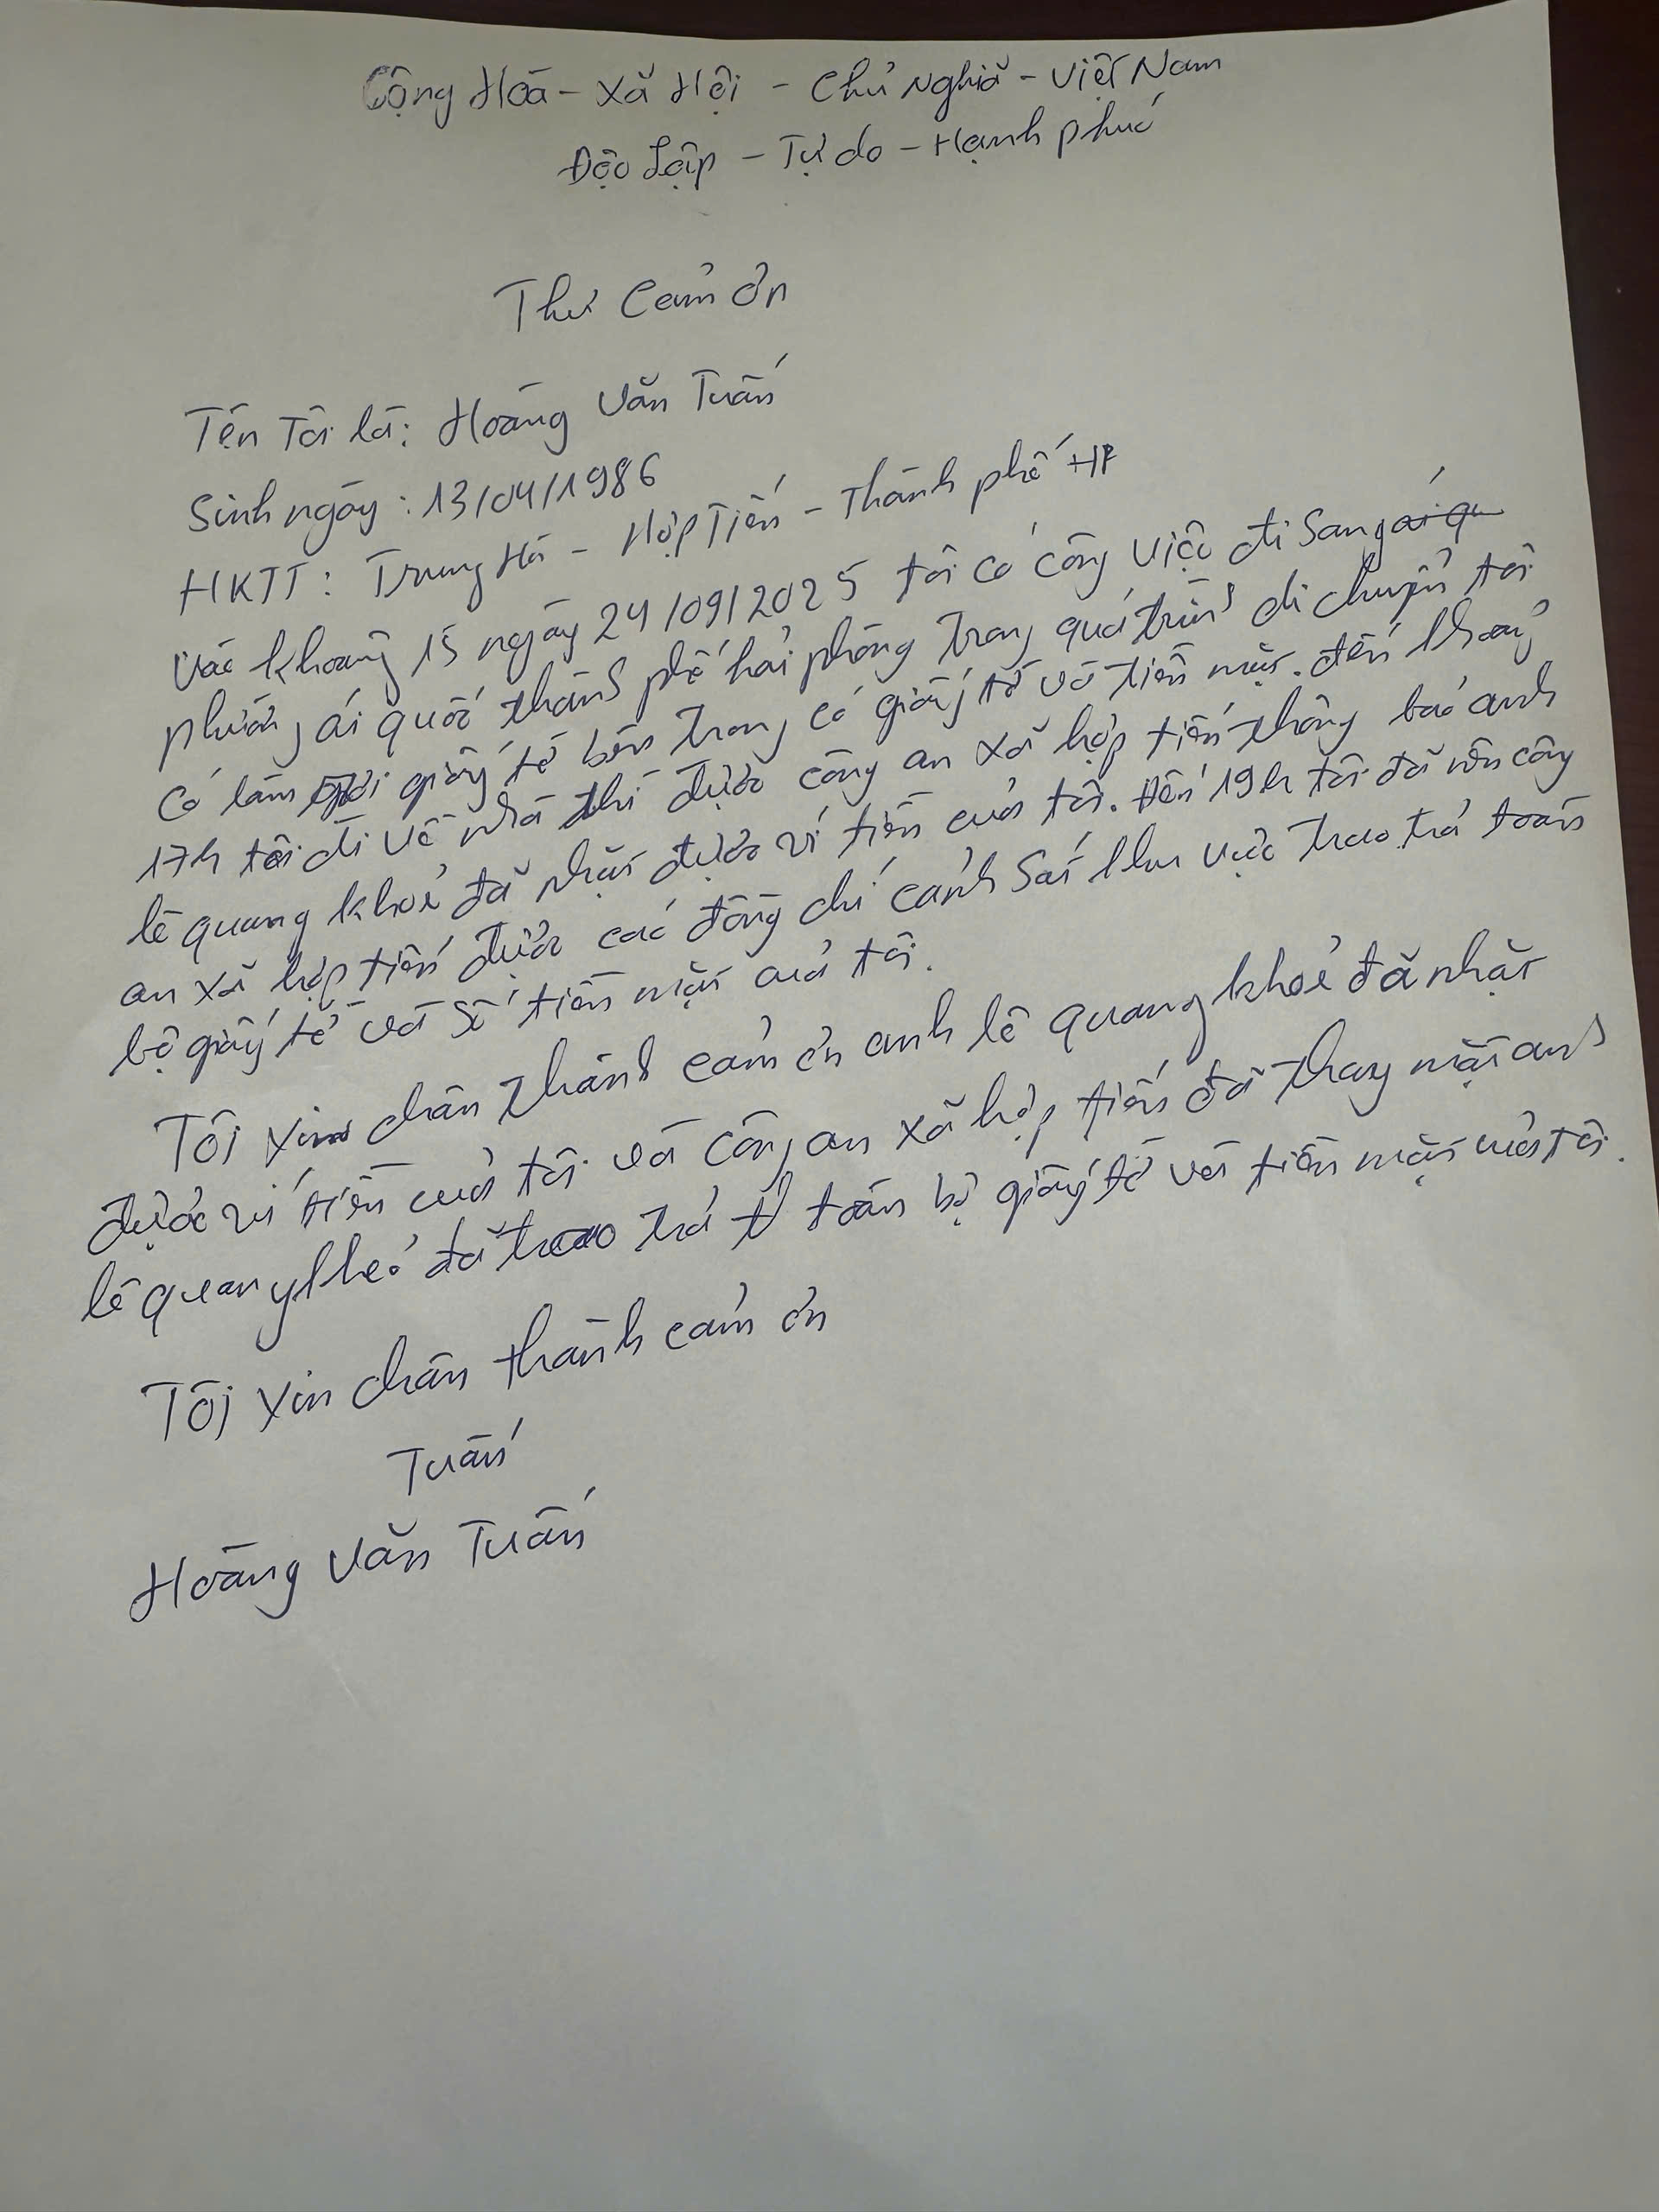 Cộng Hoà - Xã Hội - Chủ Nghiã - Việt Nam
Độc Lập - Tự do - Hạnh phúc
Thư Cảm Ơn
Tên Tôi là: Hoàng Văn Tuấn
Sinh ngày: 13/04/1986
HKTT: Trung Hà - Hợp Tiến - Thành phố HP
Vào khoảng 15 ngày 24/09/2025 tôi có công việc đi Sang ái qu
phường ái quốc thành phố hải phòng Trong quá trình di chuyển tôi
có làm giấy tờ bên trong có giấy tờ và tiền mặt. đến khoảng
17h tôi đi về nhà thì được công an xã hợp tiến thông báo anh
lê quang khoẻ đã nhặt được ví tiền của tôi. Đến 19h tôi đã nên công
an xã hợp tiến được các đồng chí cảnh Sát khu vực trao trả toàn
bộ giấy tờ và số tiền mặt của tôi.
Tôi xin chân thành cảm ơn anh lê quang khoẻ đã nhặt
được ví tiền của tôi và công an xã hợp tiến đã thay mặt anh
lê quang khoẻ đã trao trả toàn bộ giấy tờ và tiền mặt của tôi.
Tôi xin chân thành cảm ơn
Tuấn
Hoàng Văn Tuấn